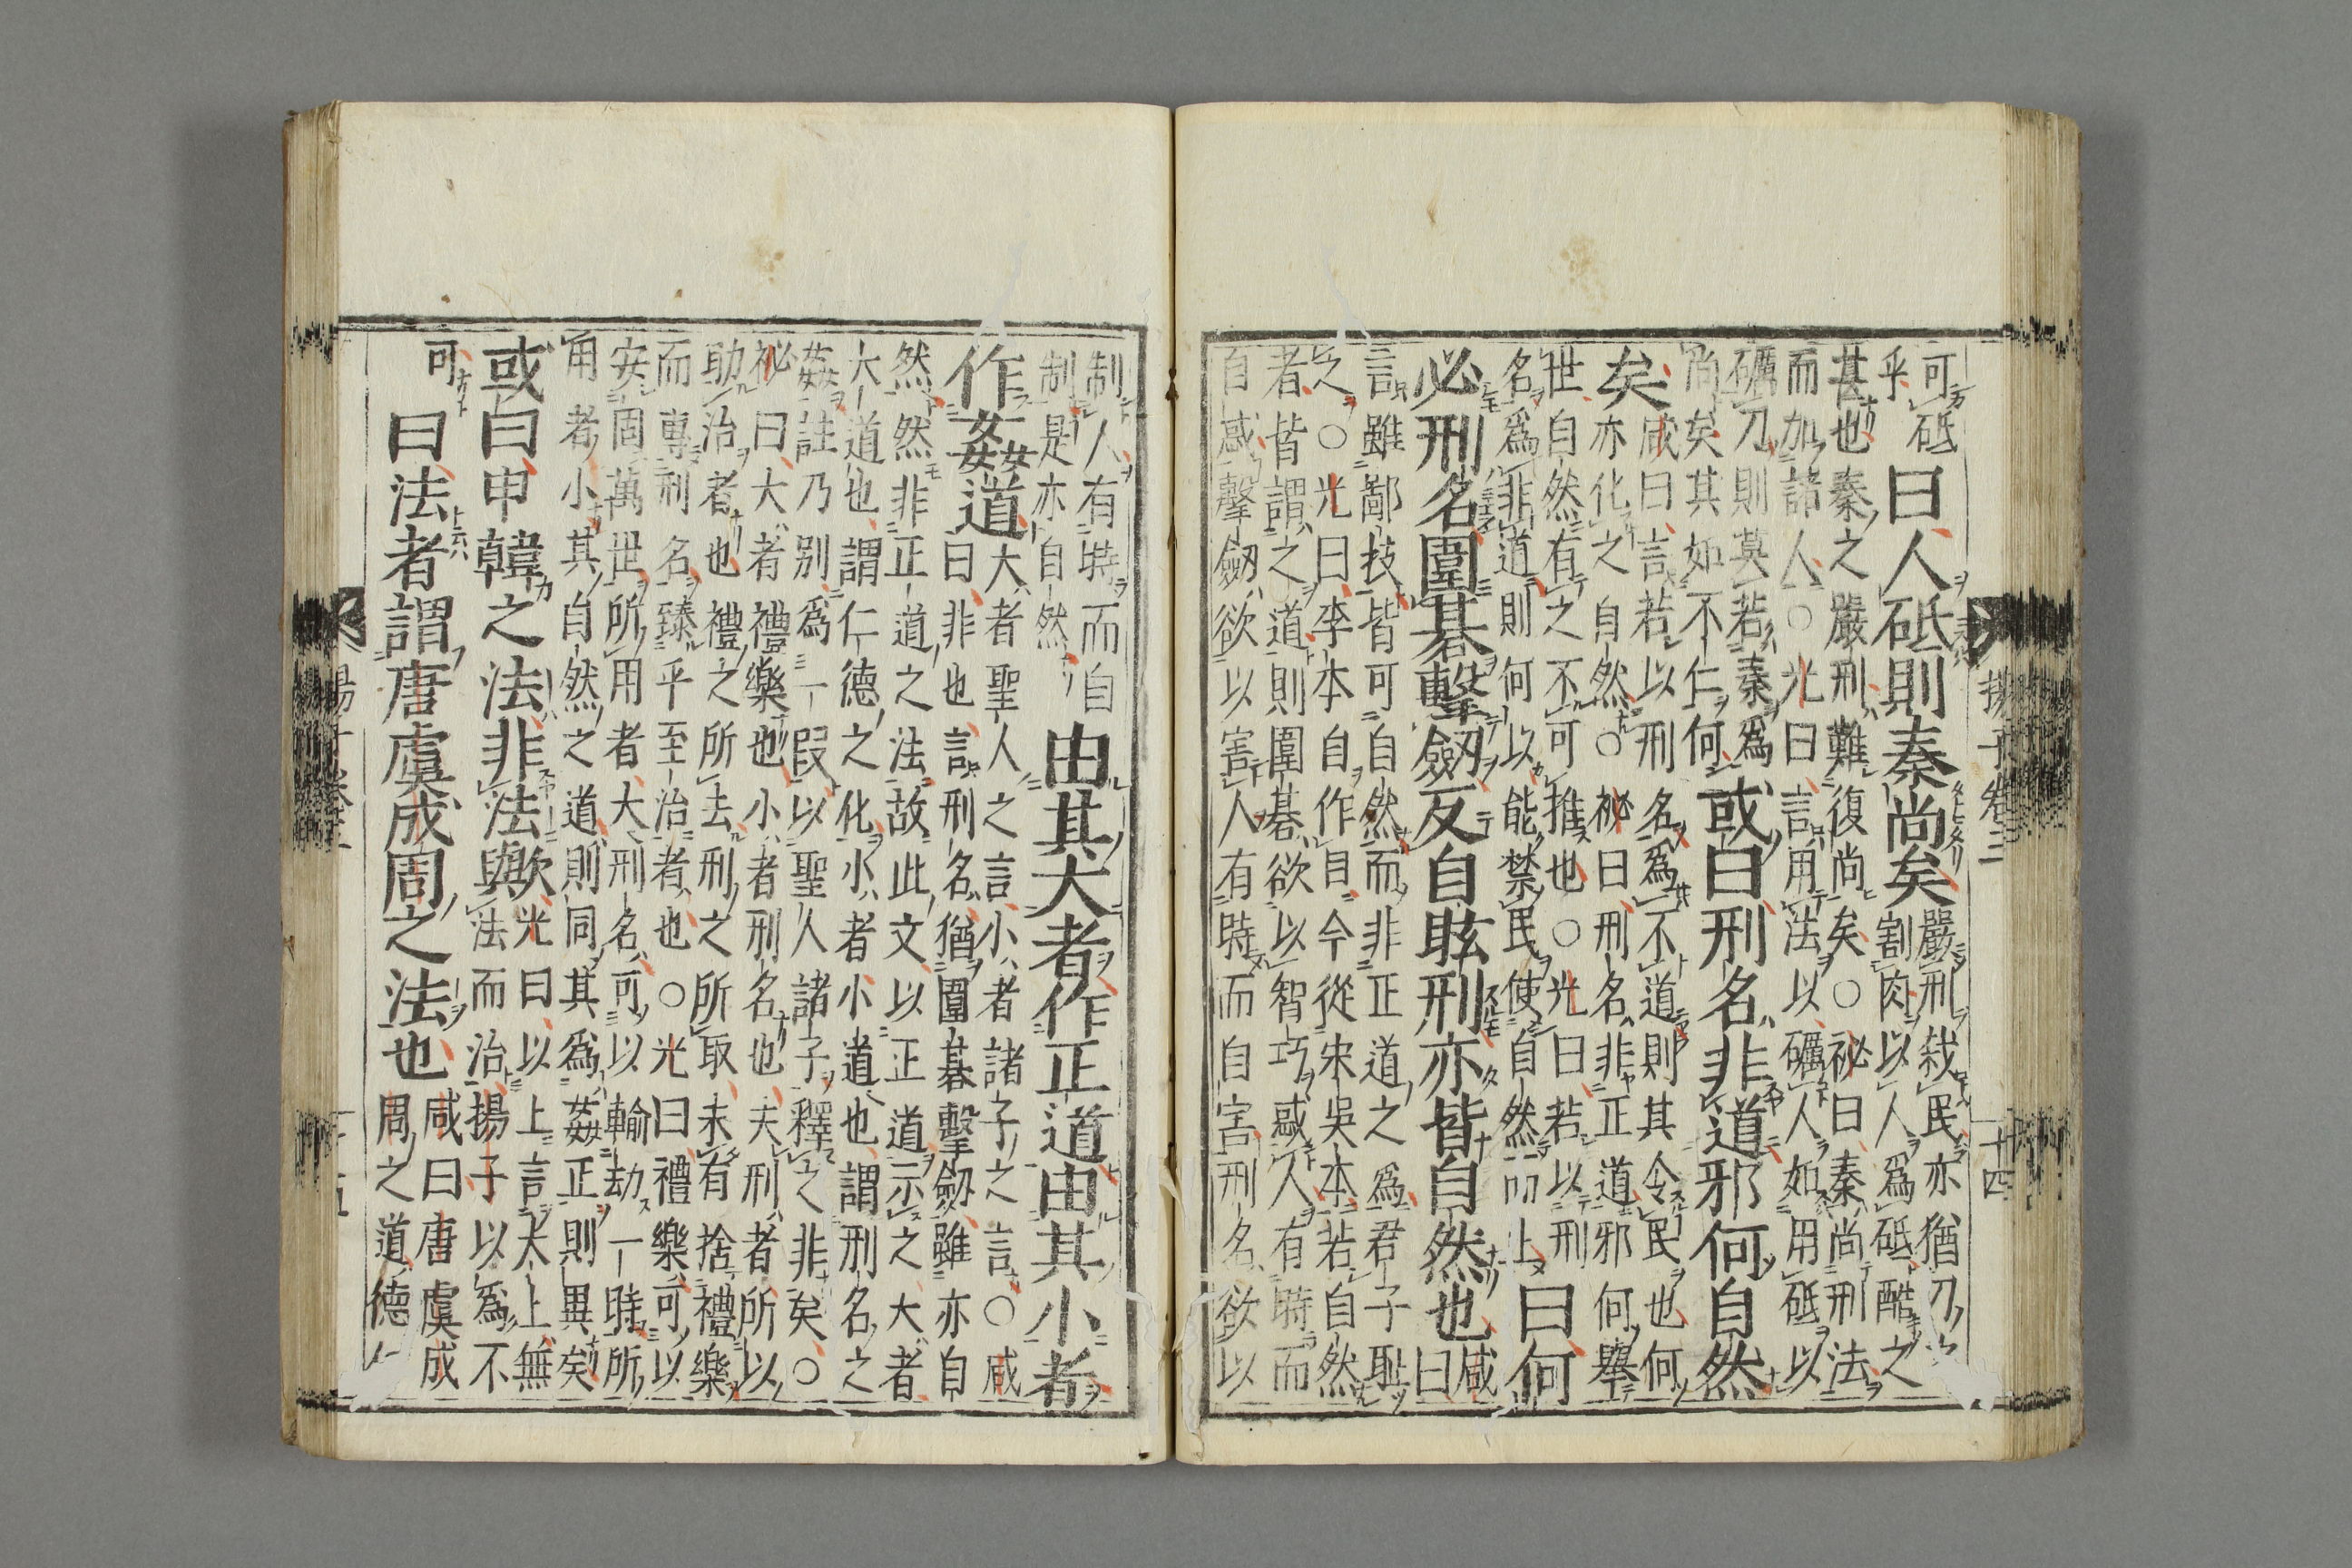 揚子卷三　十四
可砥
乎
曰人砥則秦尚矣
嚴刑裁民亦猶刀
割肉以人爲砥酷之
甚也秦之嚴刑難復尚矣○祕曰秦尚刑法
而加諸人○光曰言用法以礪人如用砥以
礪刀則莫若秦爲
尚矣其如不仁何
或曰刑名非道邪何自然
矣
咸曰言若以刑名爲不道則其令民也何
亦化之自然○祕曰刑名非正道邪何舉
世自然有之不可推也○光曰若以刑
名爲非道則何以能禁民使自然而止
曰何
必刑名圍棊擊劒反自眩刑亦皆自然也
咸
曰
言雖鄙技皆可自然而非正道之爲君子恥
之○光曰李本自作目今從宋吳本若自然
者皆謂之道則圍棊欲以智巧惑人有時而
自惑擊劒欲以害人有時而自害刑名欲以
制人有時而自
制是亦自然
由其大者作正道由其小者
作姦道
大者聖人之言小者諸子之言○咸
曰非也言刑名猶圍棊擊劒雖亦自
然然非正道之法故此文以正道示之大者
大道也謂仁德之化小者小道也謂刑名之
姦註乃别爲一叚以聖人諸子釋之非矣○
祕曰大者禮樂也小者刑名也夫刑者所以
助治者也禮之所去刑之所取未有捨禮樂
而專刑名臻乎至治者也○光曰禮樂可以
安固萬世所用者大刑名可以輸劫一時所
用者小其自然之道則同其爲姦正則異矣
或曰申韓之法非法歟
光曰以上言太上無
法而治揚子以爲不
可
曰法者謂唐虞成周之法也
咸曰唐虞成
周之道德